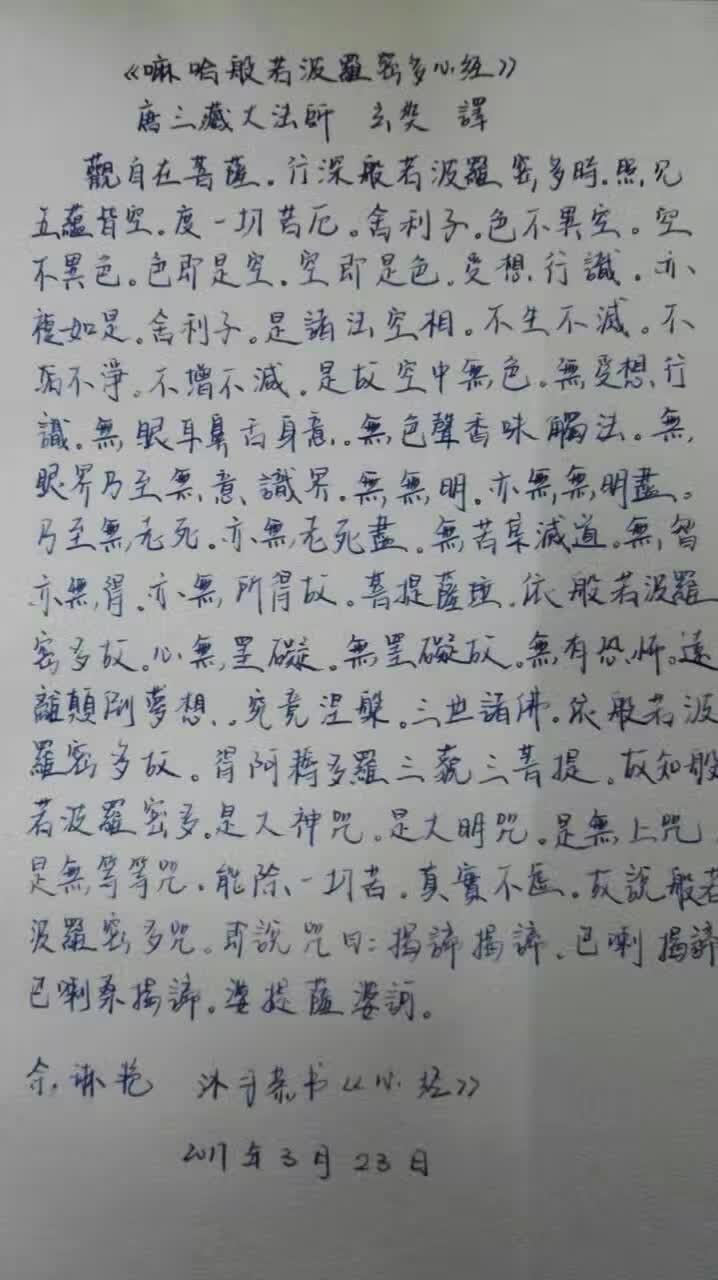 《嘛哈般若波羅密多心经》
唐三藏大法師 玄奘 譯
觀自在菩薩。行深般若波羅密多時。照見
五蘊皆空。度一切苦厄。舍利子。色不異空。空
不異色。色即是空。空即是色。受想行識。亦
複如是。舍利子。是諸法空相。不生不滅。不
垢不淨。不增不減。是故空中無色。無受想行
識。無眼耳鼻舌身意。無色聲香味觸法。無
眼界乃至無意識界。無無明。亦無無明盡。
乃至無老死。亦無老死盡。無苦集滅道。無智
亦無得。亦無所得故。菩提薩埵。依般若波羅
密多故。心無罣礙。無罣礙故。無有恐怖。遠
離顛倒夢想。究竟涅槃。三世諸佛。依般若波
羅密多故。得阿耨多羅三藐三菩提。故知般
若波羅密多。是大神咒。是大明咒。是無上咒
是無等等咒。能除一切苦。真實不虛。故說般若
波羅密多咒。即說咒曰：揭諦揭諦。巴喇揭諦
巴喇桑揭諦。婆提薩婆訶。
余琳艳 沐手恭书《心经》
2017年3月23日